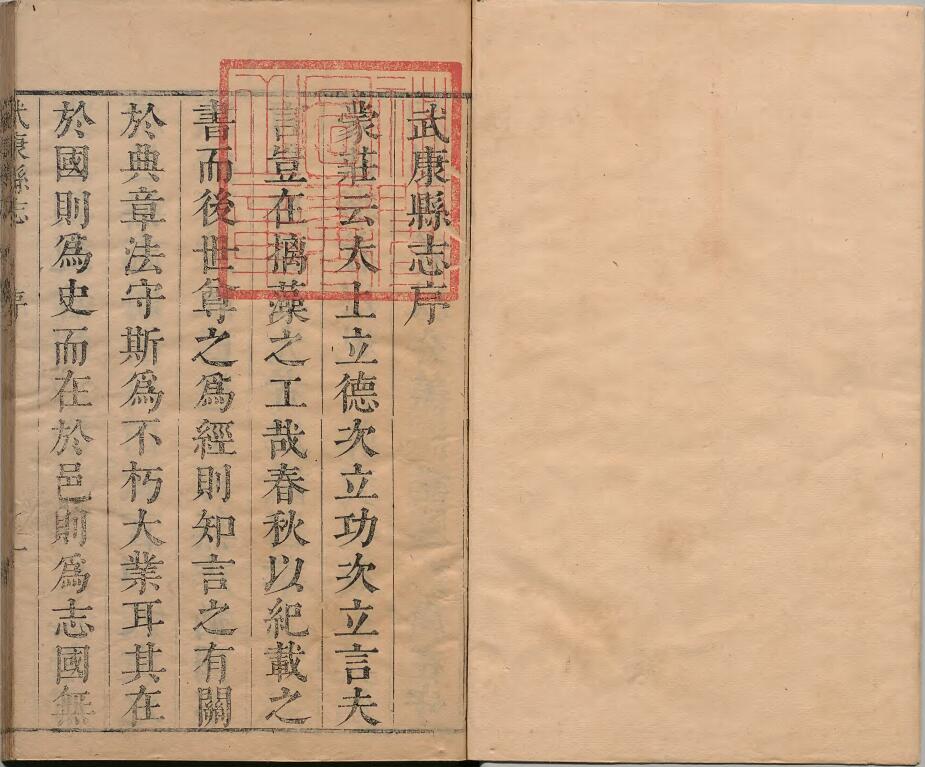 武康縣志序
蒙莊云太上立德次立功次立言夫
言豈在摛藻之工哉春秋以紀載之
書而後世尊之爲經則知言之有關
於典章法守斯爲不朽大業耳其在
於國則爲史而在於邑則爲志國無
武康縣志 序 一